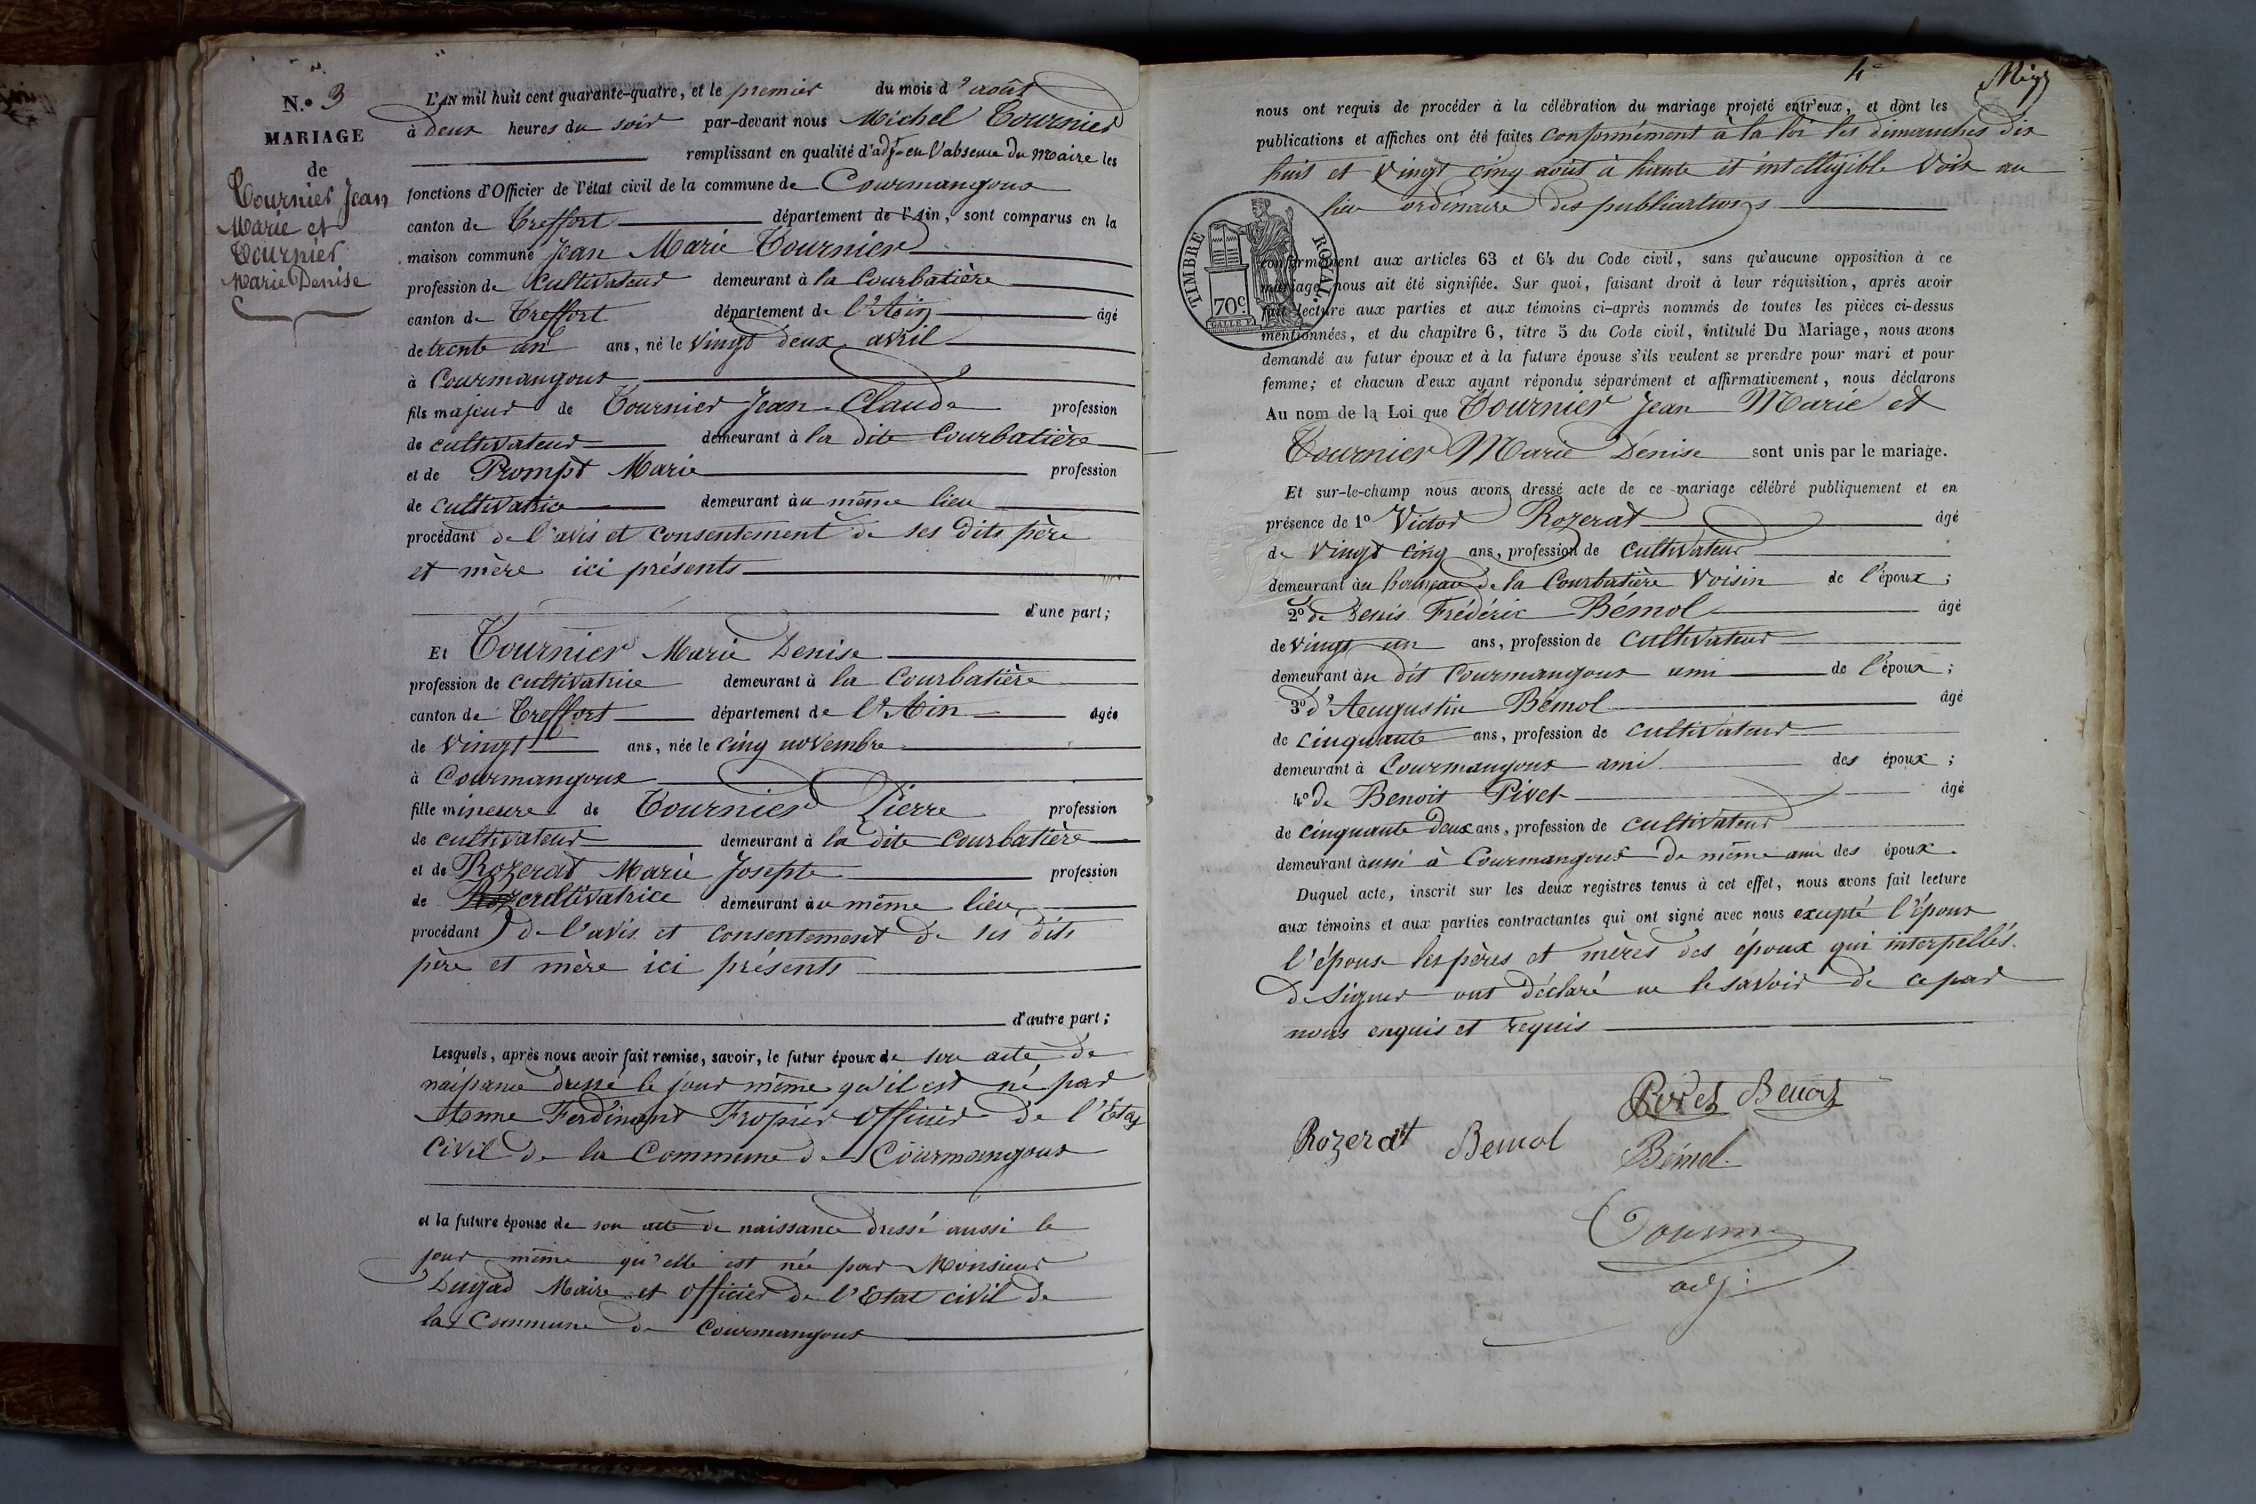 N.º 3
MARIAGE
de
Tournier Jean
Marie et
Tournier
Marie Denise
L'AN mil huit cent quarante-quatre, et le premier du mois d'août
à deux heures du soir par-devant nous Michel Tournier
remplissant en qualité d'adjt en l'absence du Maire les
fonctions d'Officier de l'état civil de la commune de Courmangoux
canton de Treffort département de l'Ain, sont comparus en la
maison commune Jean Marie Tournier
profession de cultivateur demeurant à la Courbatière
canton de Treffort département de l'Ain âgé
de trente un ans, né le vingt deux avril
à Courmangoux
fils majeur de Tournier Jean Claude profession
de cultivateur demeurant à la dite Courbatière
et de Prompt Marie profession
de cultivatrice demeurant àu même lieu
procédant de l'avis et consentement de ses dits père
et mère ici présents
d'une part;
Et Tournier Marie Denise
profession de cultivatrice demeurant à la Courbatière
canton de Treffort département de l'Ain âgée
de vingt ans, née le cinq novembre
à Courmangoux
fille mineure de Tournier Pierre profession
de cultivateur demeurant à la dite Courbatière
et de Rozerat Marie Josepte profession
de cultivatrice demeurant àu même lieu
procédant de l'avis et consentement de ses dits
père et mère ici présents
d'autre part;
Lesquels, après nous avoir fait remise, savoir, le futur époux de son acte de
naissance dressé le jour même qu'il est né par
Anne Ferdinand Fropier officier de l'Etat
Civil de la Commune de Courmangoux
et la future épouse de son acte de naissance dressé aussi le
jour même qu'elle est née par Monsieur
Dugad Maire et officier de l'Etat civil de
la Commune de Courmangoux
4e
nous ont requis de procéder à la célébration du mariage projeté entr'eux, et dont les
publications et affiches ont été faites conformément à la loi les dimanches dix
huit et vingt cinq août à haute et intelligible voix au
lieu ordinaire des publications
TIMBRE ROYAL.
70c.
conformément aux articles 63 et 64 du Code civil, sans qu'aucune opposition à ce
mariage nous ait été signifiée. Sur quoi, faisant droit à leur réquisition, après avoir
fait lecture aux parties et aux témoins ci-après nommés de toutes les pièces ci-dessus
mentionnées, et du chapitre 6, titre 5 du Code civil, intitulé Du Mariage, nous avons
demandé au futur époux et à la future épouse s'ils veulent se prendre pour mari et pour
femme; et chacun d'eux ayant répondu séparément et affirmativement, nous déclarons
Au nom de la Loi que Tournier Jean Marie et
Tournier Marie Denise sont unis par le mariage.
Et sur-le-champ nous avons dressé acte de ce mariage célébré publiquement et en
présence de 1º Victor Rozerat âgé
de vingt cinq ans, profession de cultivateur
demeurant àu hameau de la Courbatière voisin de l'époux;
2º de Denis Frédéric Bémol âgé
de vingt un ans, profession de cultivateur
demeurant àu dit Courmangoux ami de l'époux;
3º d'Augustin Bémol âgé
de cinquante ans, profession de cultivateur
demeurant à Courmangoux ami des époux;
4º de Benoit Pivet âgé
de cinquante deux ans, profession de cultivateur
demeurant àussi à Courmangoux de même ami des époux.
Duquel acte, inscrit sur les deux registres tenus à cet effet, nous avons fait lecture
aux témoins et aux parties contractantes qui ont signé avec nous excepté l'époux
l'épouse les pères et mères des époux qui interpellés
de signer ont déclaré ne le savoir de ce par
nous enquis et requis
Pivet Benoit
Rozerat Bemol Bémol
Tournier
adj: